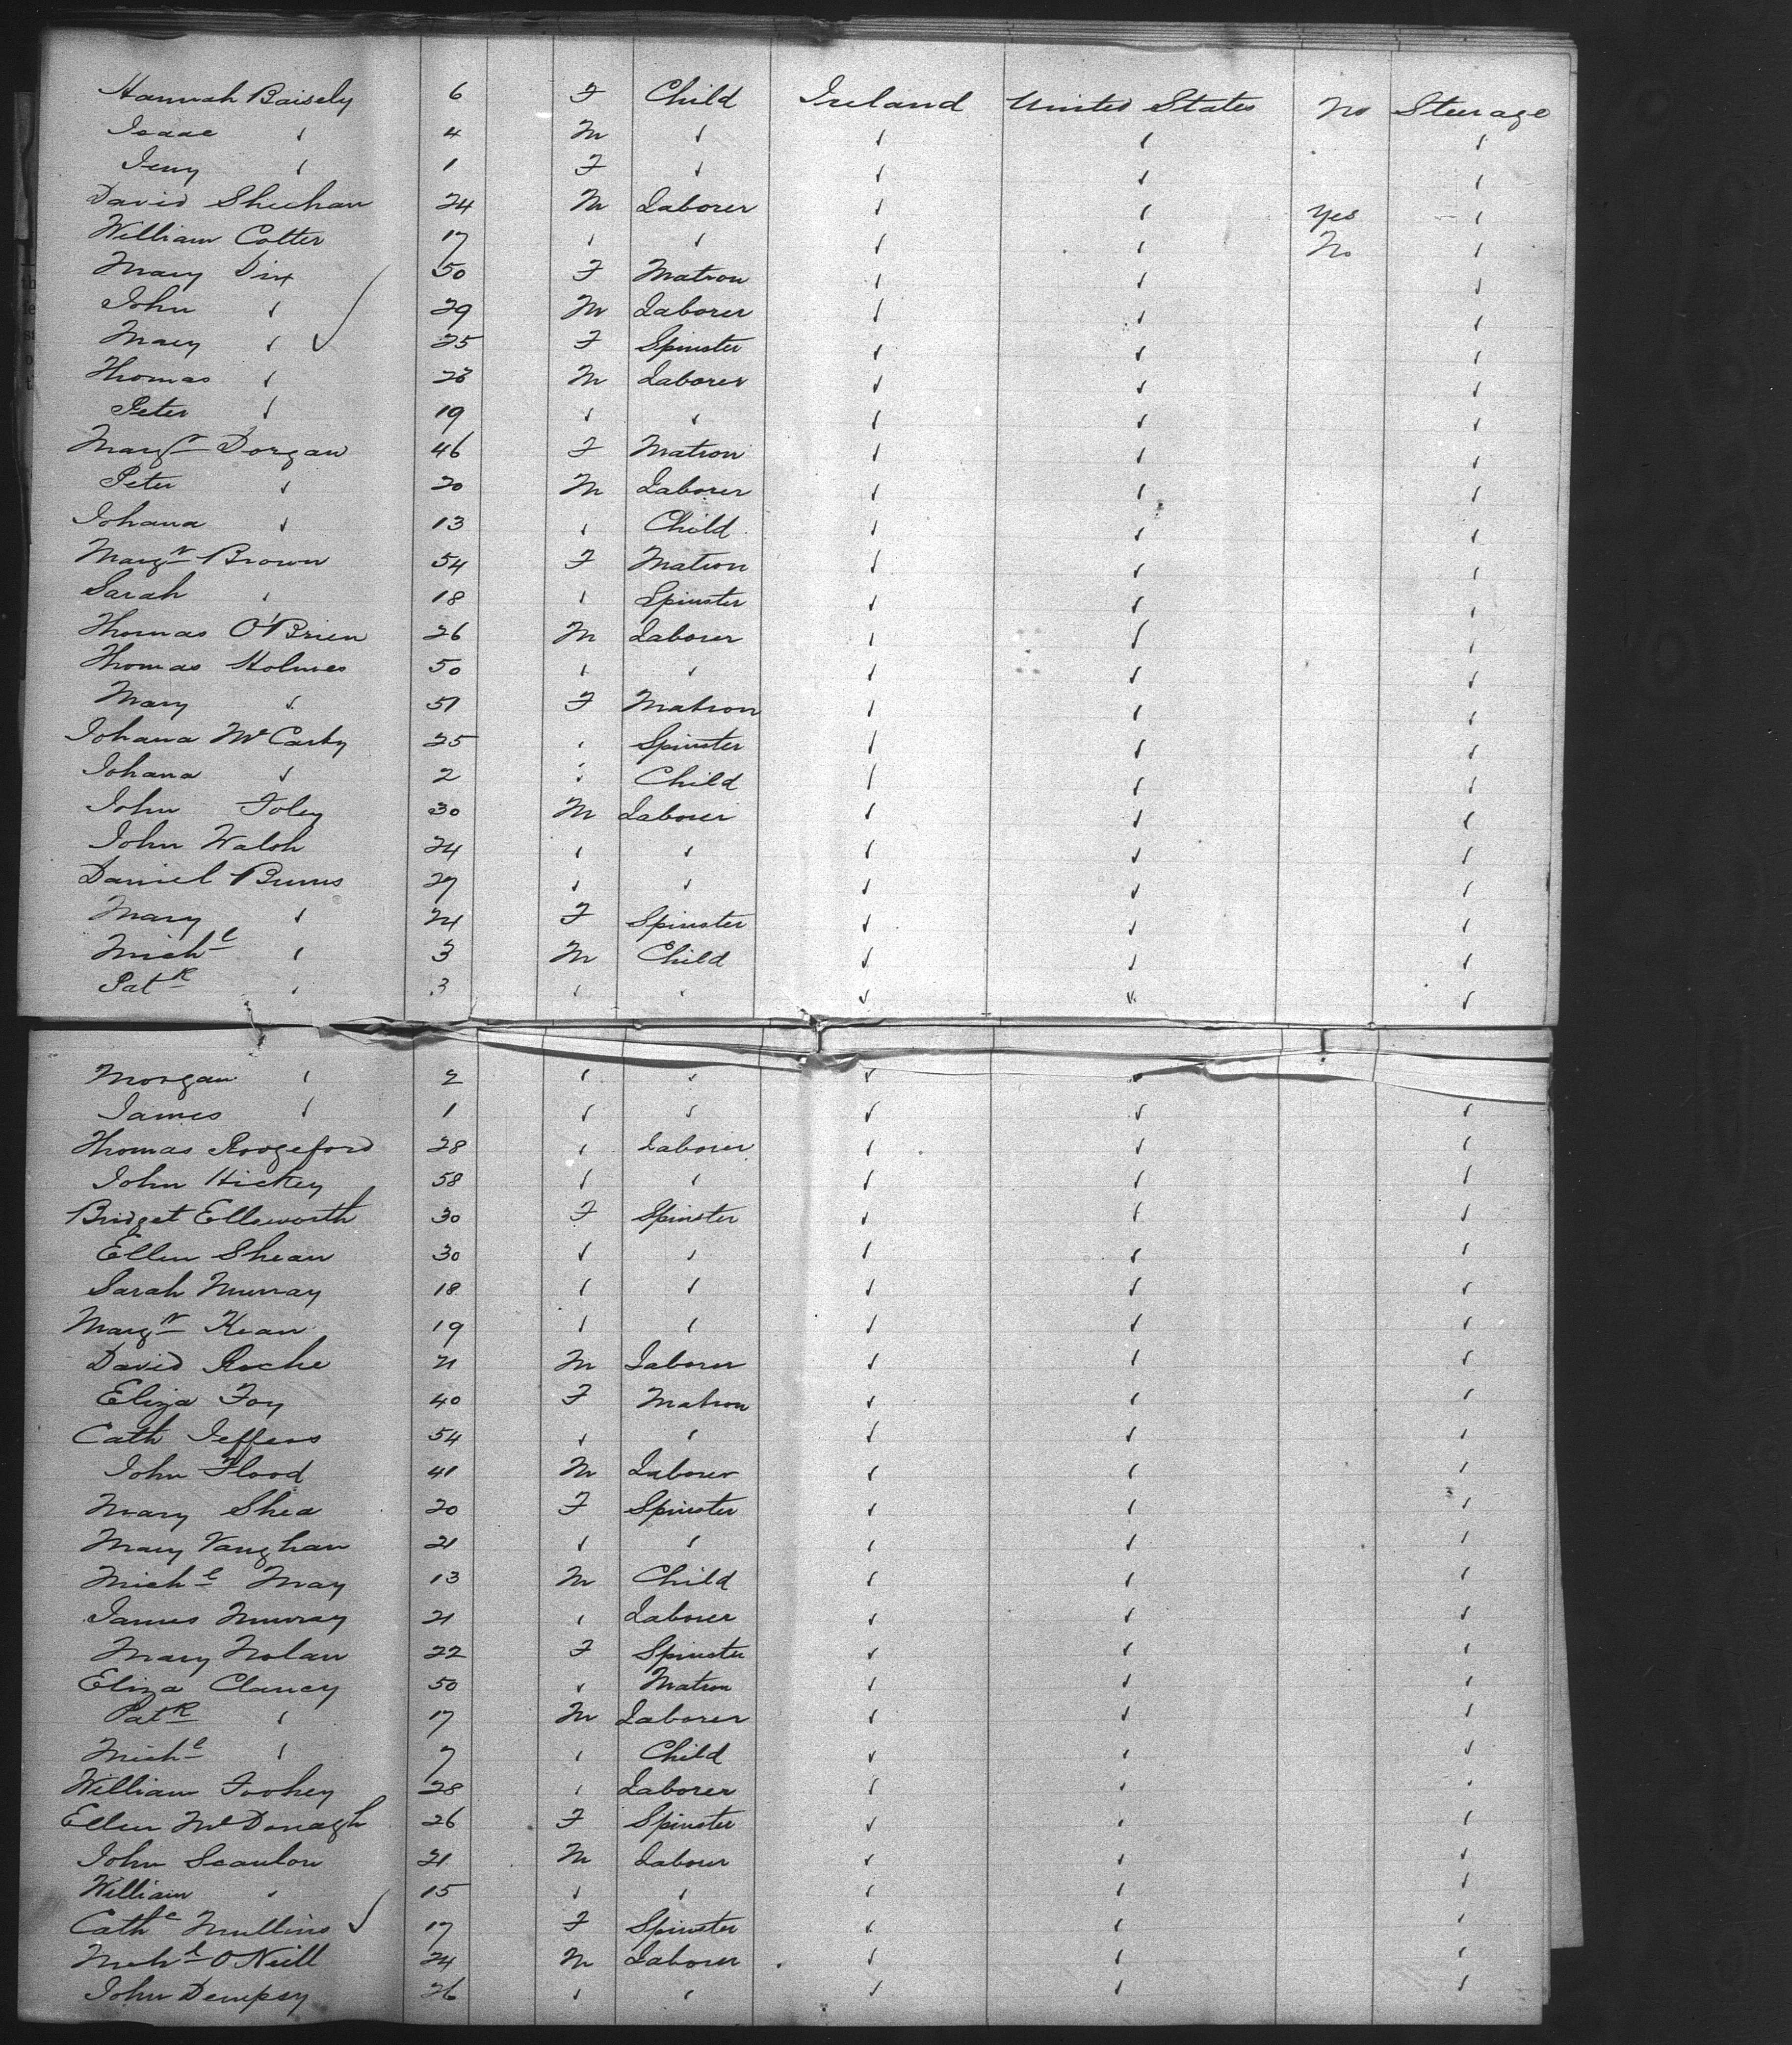 Hannah Baisely 6 F Child Ireland United States No Steerage
Isaac ✓ 4 M ✓ ✓ ✓ ✓
Jeny ✓ 1 F ✓ ✓ ✓ ✓
David Sheehan 24 M Laborer ✓ ✓ Yes ✓
William Cotter 17 ✓ ✓ ✓ ✓ No ✓
Mary Dix 50 F Matron ✓ ✓ ✓
John ✓ 29 M Laborer ✓ ✓ ✓
Mary ✓ 25 F Spinster ✓ ✓ ✓
Thomas ✓ 23 M Laborer ✓ ✓ ✓
Peter ✓ 19 ✓ ✓ ✓ ✓ ✓
Margt Dorgan 46 F Matron ✓ ✓ ✓
Peter ✓ 20 M Laborer ✓ ✓ ✓
Johana ✓ 13 ✓ Child ✓ ✓ ✓
Margt Brown 54 F Matron ✓ ✓ ✓
Sarah ✓ 18 ✓ Spinster ✓ ✓ ✓
Thomas O'Brien 26 M Laborer ✓ ✓ ✓
Thomas Holmes 50 ✓ ✓ ✓ ✓ ✓
Mary ✓ 51 F Matron ✓ ✓ ✓
Johana McCarty 25 ✓ Spinster ✓ ✓ ✓
Johana ✓ 2 ✓ Child ✓ ✓ ✓
John Foley 30 M Laborer ✓ ✓ ✓
John Walsh 24 ✓ ✓ ✓ ✓ ✓
Daniel Burns 27 ✓ ✓ ✓ ✓ ✓
Mary ✓ 24 F Spinster ✓ ✓ ✓
Michl ✓ 3 M Child ✓ ✓ ✓
Patk ✓ 3 ✓ ✓ ✓ ✓ ✓
Morgan ✓ 2 ✓ ✓ ✓ ✓
James ✓ 1 ✓ ✓ ✓ ✓ ✓
Thomas Roogeford 28 ✓ Laborer ✓ ✓ ✓
John Hickey 58 ✓ ✓ ✓ ✓ ✓
Bridget Ellsworth 30 F Spinster ✓ ✓ ✓
Ellen Shean 30 ✓ ✓ ✓ ✓ ✓
Sarah Murray 18 ✓ ✓ ✓ ✓ ✓
Margt Kean 19 ✓ ✓ ✓ ✓ ✓
David Roche 21 M Laborer ✓ ✓ ✓
Eliza Foy 40 F Matron ✓ ✓ ✓
Cath Jeffers 54 ✓ ✓ ✓ ✓ ✓
John Flood 41 M Laborer ✓ ✓ ✓
Mary Shea 20 F Spinster ✓ ✓ ✓
Mary Vaughan 21 ✓ ✓ ✓ ✓ ✓
Michl May 13 M Child ✓ ✓ ✓
James Murray 21 ✓ Laborer ✓ ✓ ✓
Mary Nolan 22 F Spinster ✓ ✓ ✓
Eliza Clancy 50 ✓ Matron ✓ ✓ ✓
Patk ✓ 17 M Laborer ✓ ✓ ✓
Michl ✓ 7 ✓ Child ✓ ✓ ✓
William Foohey 28 ✓ Laborer ✓ ✓ ✓
Ellen McDonagh 26 F Spinster ✓ ✓ ✓
John Scanlon 21 M Laborer ✓ ✓ ✓
William ✓ 15 ✓ ✓ ✓ ✓ ✓
Cathe Mullins ✓ 17 F Spinster ✓ ✓ ✓
Michl O'Neill 24 M Laborer ✓ ✓ ✓
John Dempsy 26 ✓ ✓ ✓ ✓ ✓